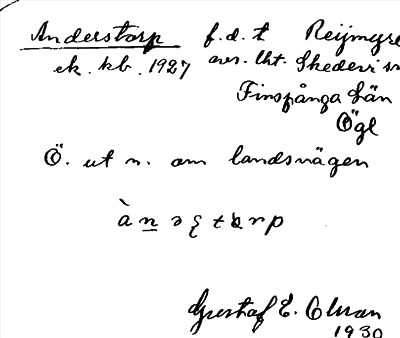 Anderstorp f.d.t Reijmyre
ek. kb. 1927 avs. lht. Skedevi sn
Finspånga län
Ögl
Ö. ut n. om landsvägen
Gustaf E. Olman
1930